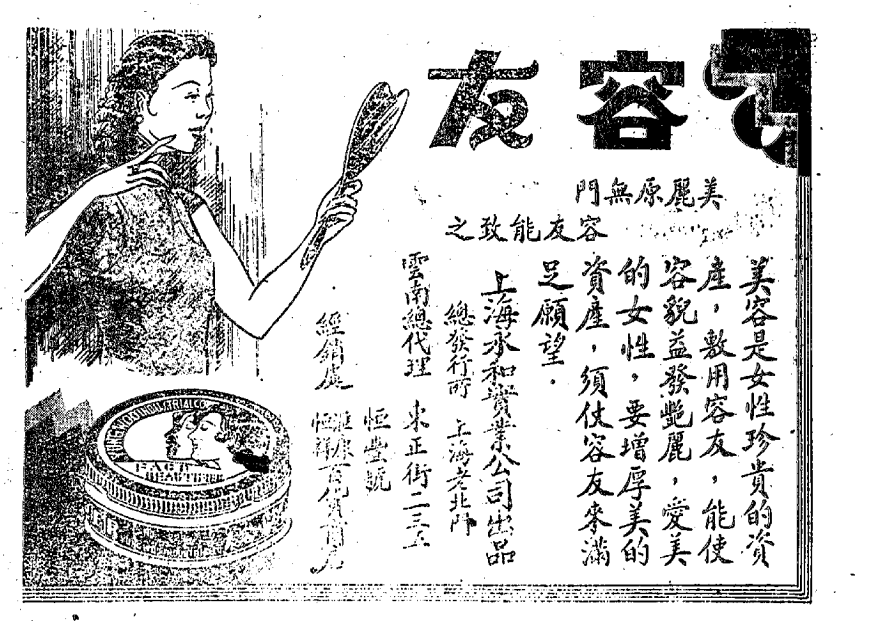 容友
美麗原無門
容友能致之
美容是女性珍貴的資
產，敷用容友，能使
容貌益發艷麗，愛美
的女性，要增厚美的
資產，須仗容友來滿
足願望．
上海永和實業公司出品
總發行所 上海老北門
雲南總代理 東正街二三五
恒豐號
經銷處
百貨商店
FACE
BEAUTIFIER